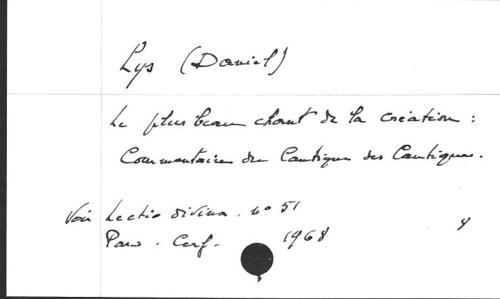 Lys (Daniel)
Le plus beau chant de la création :
Commentaire du Cantique des Cantiques.
Voir Lectio divina. n° 51
Paris. Cerf. 1968 8